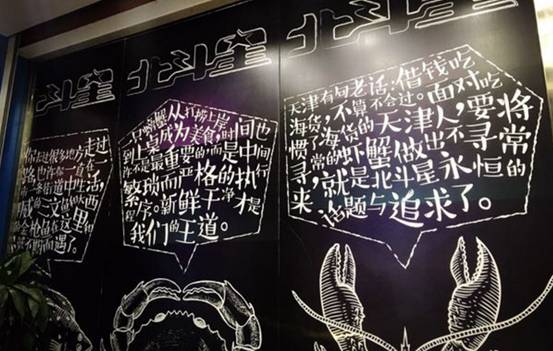 星 北斗星 北斗星
去过很多地方走过
街道中生活，
在这里
不期而遇了。
一只螃蟹从打捞上岸
到上桌成为美食，时间也
许不是最重要的，而是中间
繁琐而严格的执行
程序。新鲜干净才是
我们的王道。
天津有句老话：借钱吃
海货，不算不会过。面对吃
惯了海货的天津人，要将
寻常的虾蟹做出不寻常
来，就是北斗星永恒的
话题与追求了。